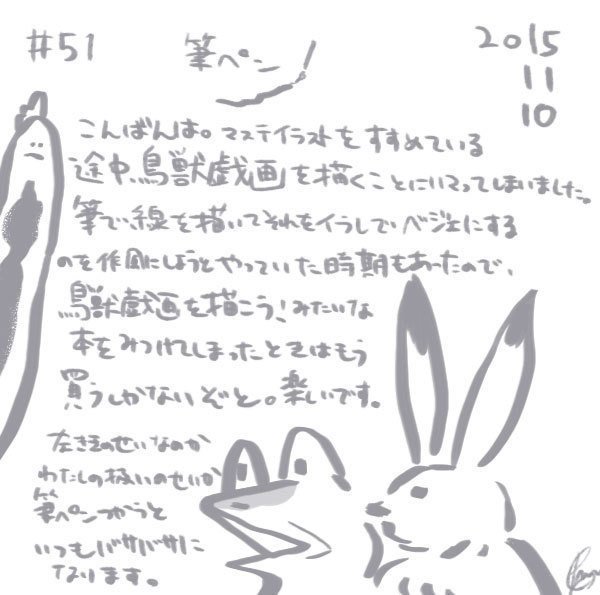 #51
筆ペン
2015
11
10
こんばんは。マステイラストをすすめている
途中、鳥獣戯画を描くことにハマってしまいました。
筆で線を描いてそれをイラレでベジェにする
のを作風にしようとやっていた時期もあったので、
鳥獣戯画を描こう!みたいな
本をみつけてしまったときはもう
買うしかないぞと。楽しいです。
左ききのせいなのか
わたしの扱いのせいか
筆ペンつかうと
いつもバサバサに
なります。